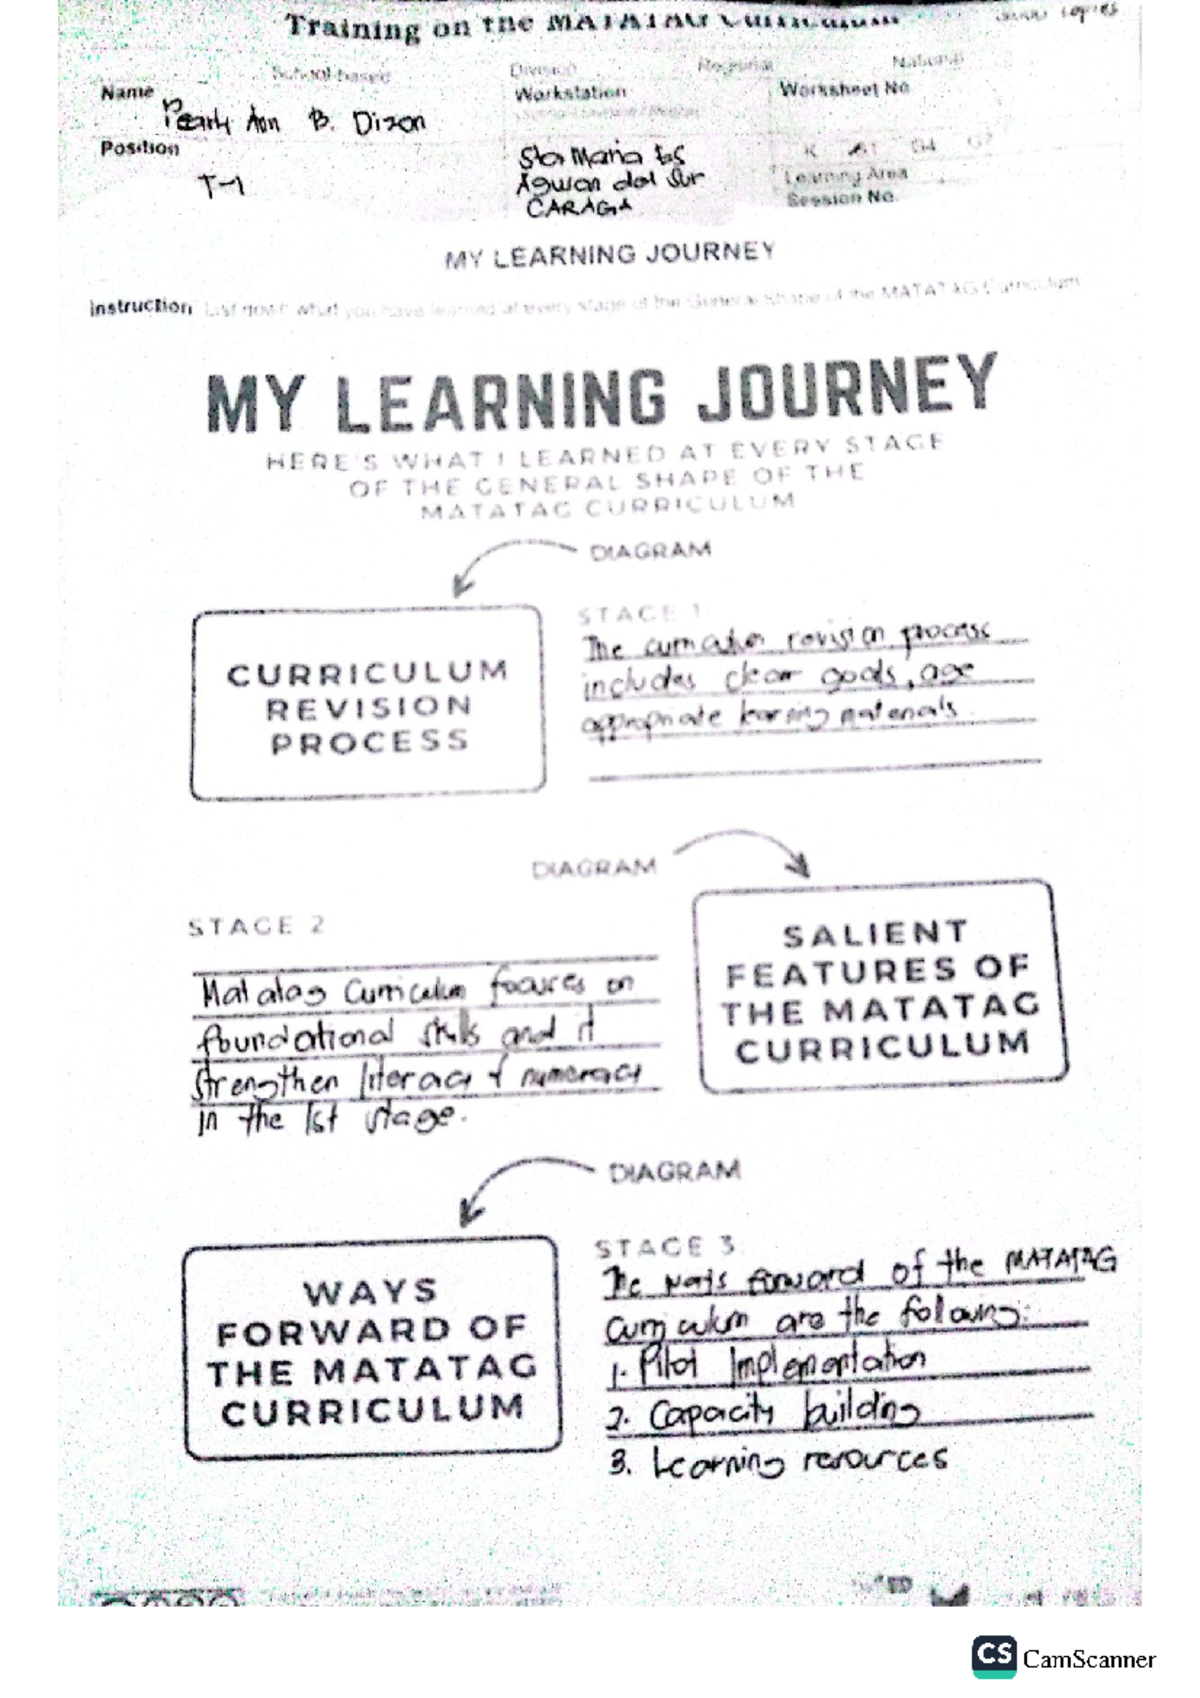 Training on the MATATAG Curriculum
copies
School-based Division Regional National
Name Workstation Worksheet No
Pearly Ann B. Dizon
Position Sta Maria ES K G4 G7
T-1 Agusan del Sur Learning Area
CARAGA Session No.
MY LEARNING JOURNEY
Instruction List down what you have learned at every stage of the General Shape of the MATATAG Curriculum
MY LEARNING JOURNEY
HERE'S WHAT I LEARNED AT EVERY STAGE
OF THE GENERAL SHAPE OF THE
MATATAG CURRICULUM
DIAGRAM
CURRICULUM
REVISION
PROCESS
STAGE 1
The curriculum revision process
includes clear goals, age
appropriate learning materials.
DIAGRAM
STAGE 2
Matatag Curriculum focuses on
foundational skills and it
strengthen literacy & numeracy
in the 1st stage.
SALIENT
FEATURES OF
THE MATATAG
CURRICULUM
DIAGRAM
WAYS
FORWARD OF
THE MATATAG
CURRICULUM
STAGE 3
The ways forward of the MATATAG
Curriculum are the following:
1. Pilot Implementation
2. Capacity building
3. Learning resources
CS CamScanner